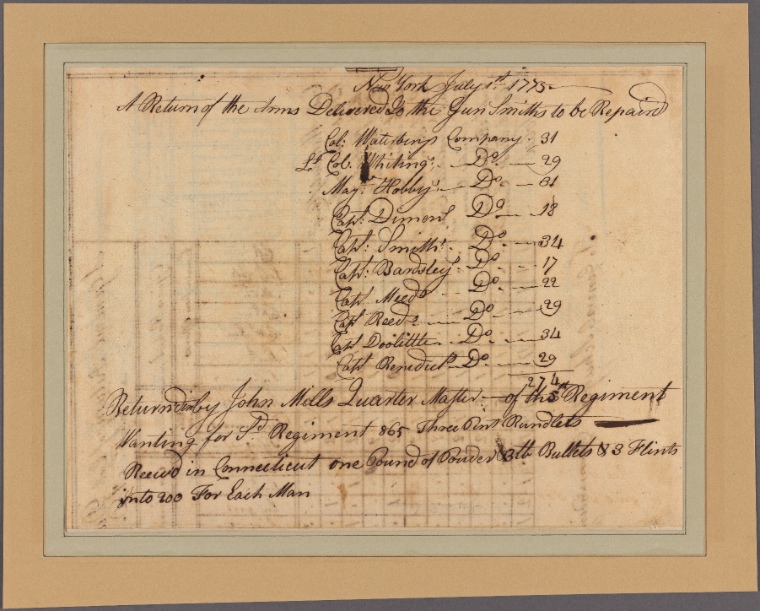 New York July 1st. 1775
A Return of the Arms Delivered To the Gun Smiths to be Repaird
Col: Waterburys Company - 31
Lt. Col. Whitings - Do. - 29
Majr. Hobbys - Do - 31
Capt: Dimons Do - 18
Capt: Smiths - Do. - 34
Capt: Bardsleys Do - 17
Capt. Meeds - Do. - 22
Capt Reeds - Do. - 29
Capt Doolittle - Do. - 34
Capt Benedicts Do. - 29
274
Returnd by John Mills Quarter Master of the Regiment
Wanting for Sd. Regiment 865 Three Pint Rundlets
Receivd in Connecticut one Pound of Powder 3 lb Bullets & 3 Flints
into 200 For Each Man